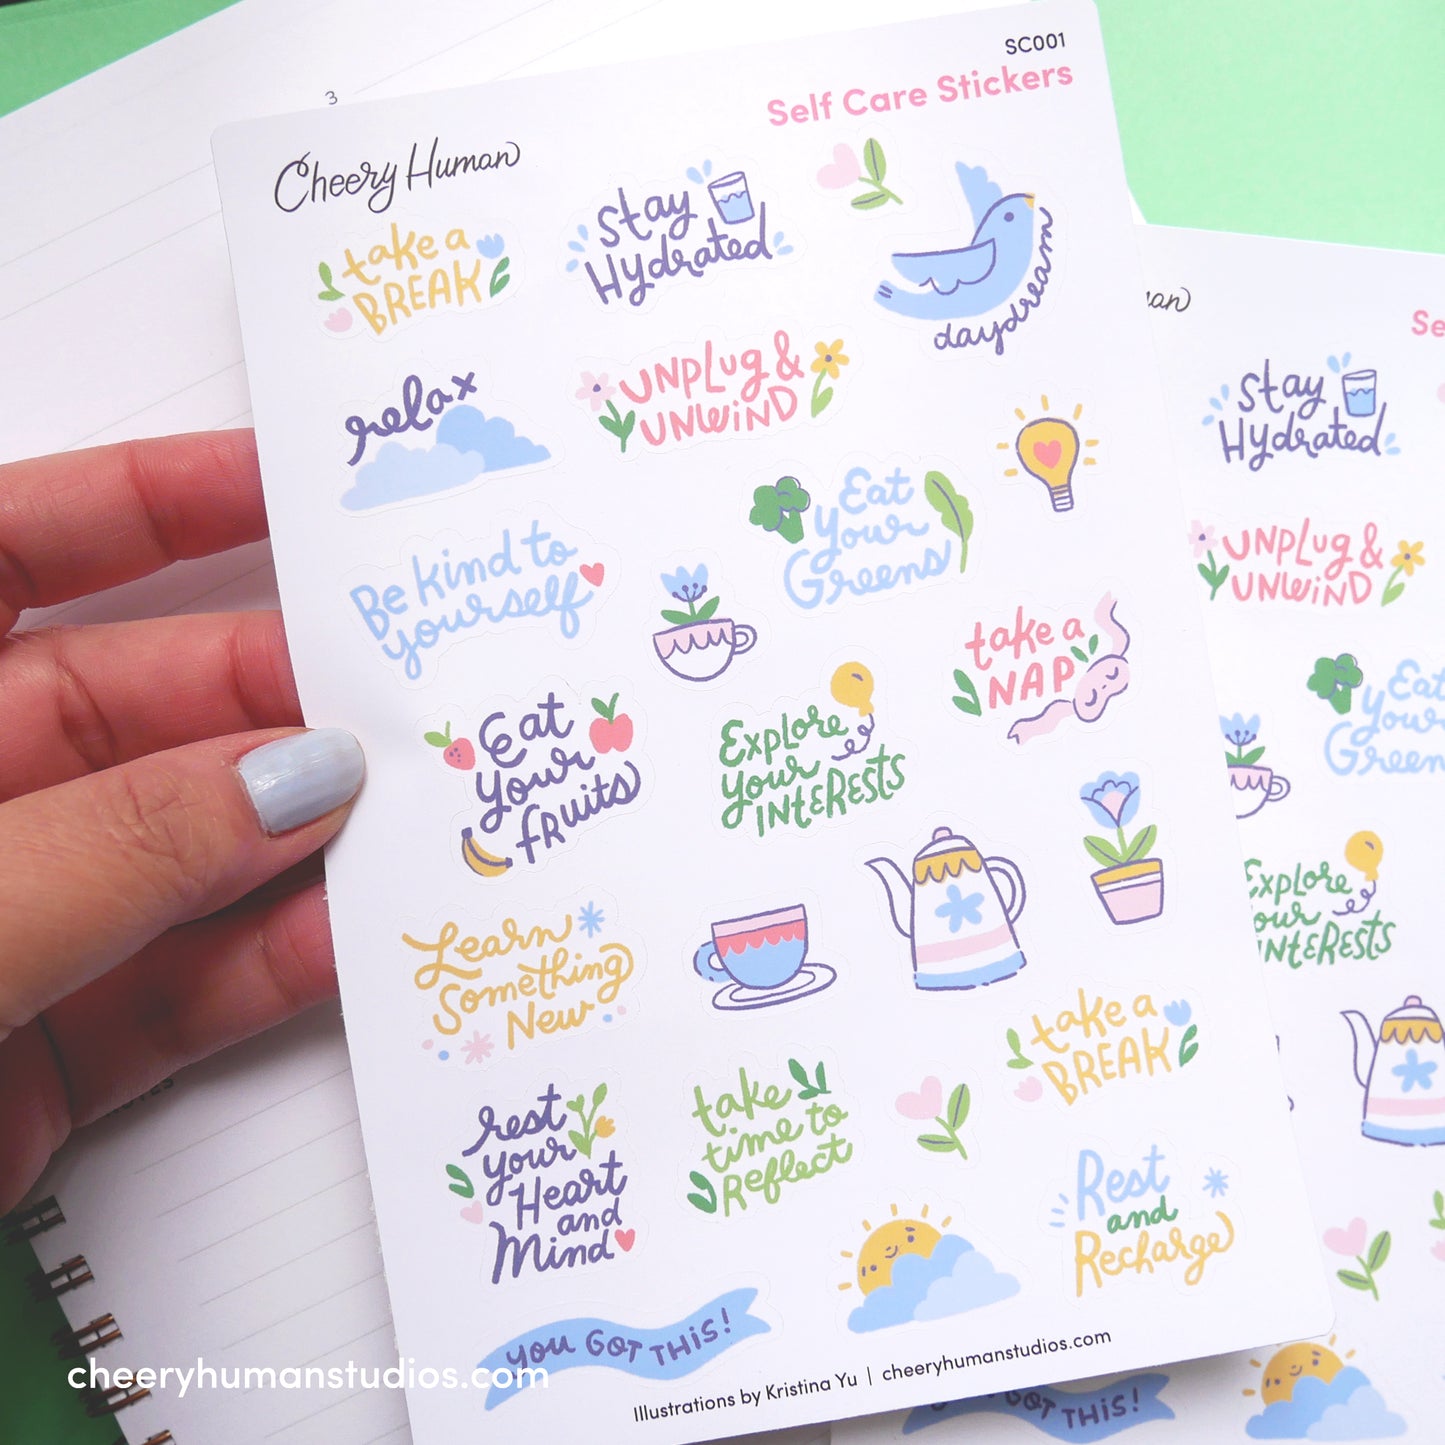 SC001
Self Care Stickers
Cheery Human
3
take a
BREAK
Stay
Hydrated
daydream
relax
UNPLUG &
UNWIND
Be kind to
yourself
Eat
your
Greens
take a
NAP
Eat
your
fruits
Explore
your
INTERESTS
Learn
Something
New
take a
BREAK
rest
your
Heart
and
Mind
take
time to
Reflect
Rest
and
Recharge
YOU GOT THIS!
Illustrations by Kristina Yu | cheeryhumanstudios.com
Stay
Hydrated
UNPLUG &
UNWIND
Eat
your
Explore
your
INTERESTS
GOT THIS!
cheeryhumanstudios.com